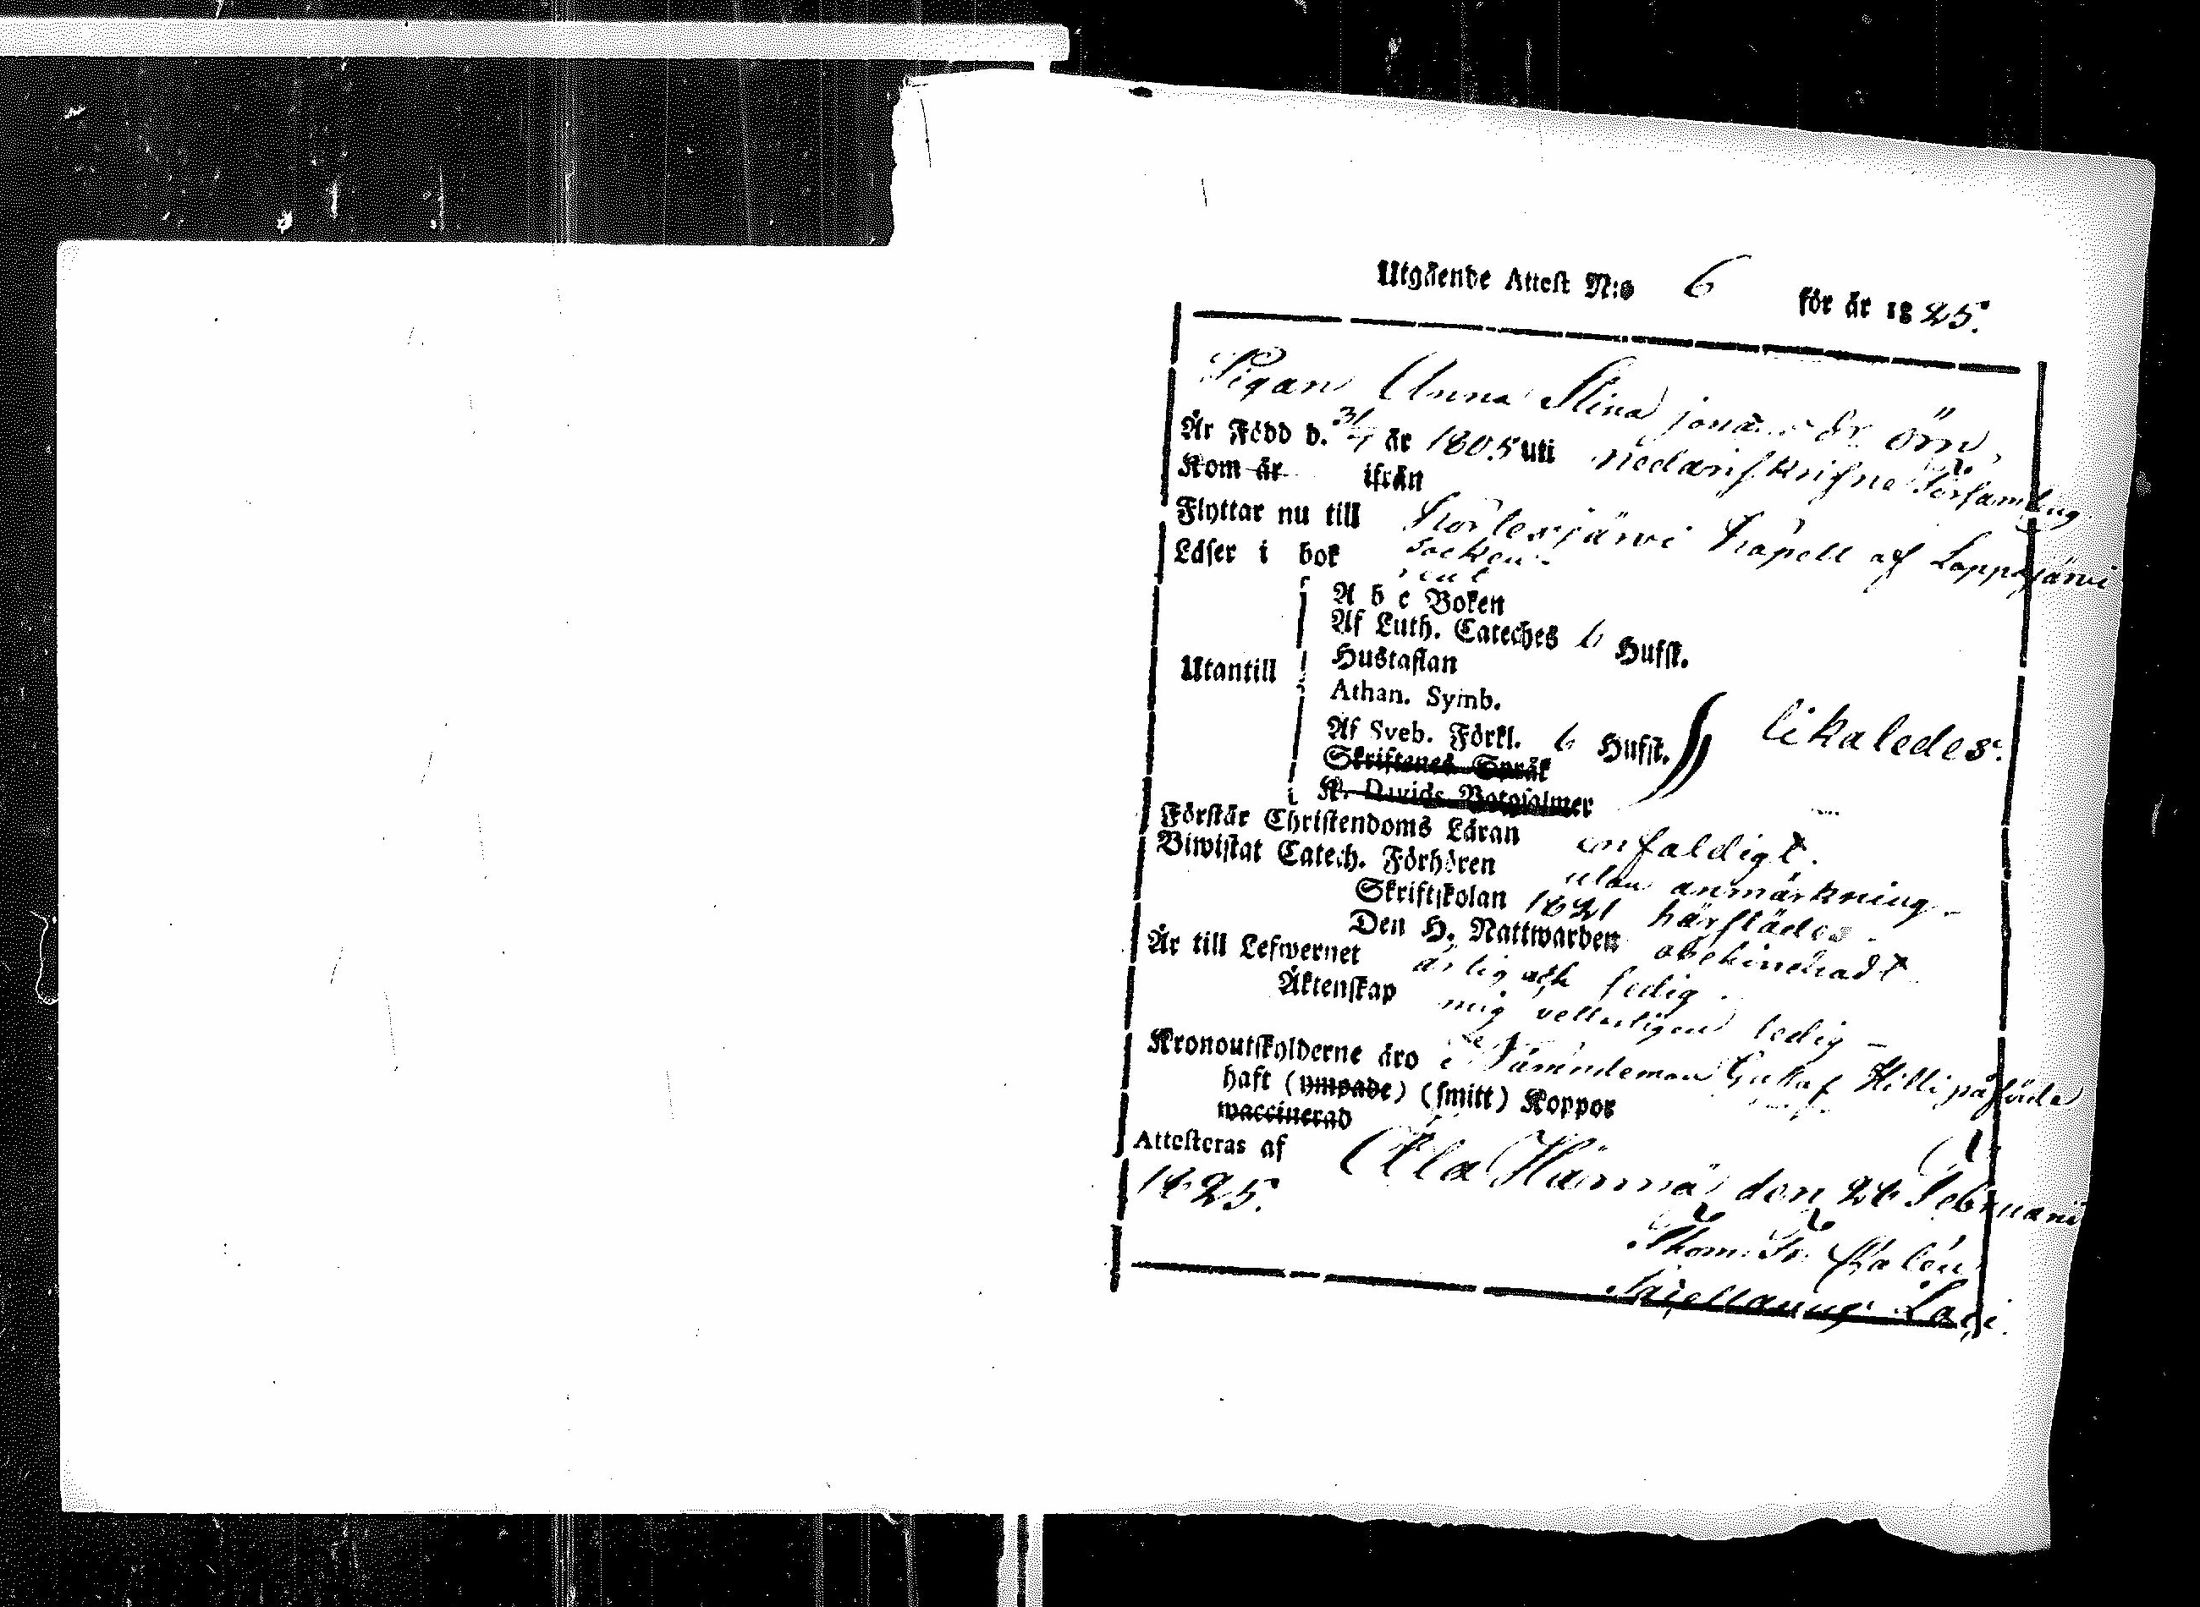 Utgående Attest N:o 6 för år 1825.
Pigan Anna Stina Örn
Är Född d. 31/7 år 1805 uti nedanskrifne Församling
Kom år ifrån
Flyttar nu till Kortesjärvi Kapell af Lappajärvi
Socken.
Läser i bok rent
A b c Boken
Af Luth. Cateches 6 Hufst.
Hustaflan
Utantill
Athan. Symb.
Af Sveb. Förkl. 6 Hufst. likaledes.
Skriftenes Språk
K. Davids Botpsalmer
Förstår Christendoms Läran enfaldigt.
Biwistat Catech. Förhören utan anmärkning
Skriftskolan 1821 härstädes
Den H. Nattwarden obehindradt
Är till Lefwernet ärlig och sedig.
Äktenskap mig vetterligen ledig
Kronoutskylderne äro Nämndeman Gustaf Hilli påförde
haft (ympade) (smitt) Koppor
waccinerad
Attesteras af Ala Härmä den 26 Februarii
1825.
Thom. Fr.